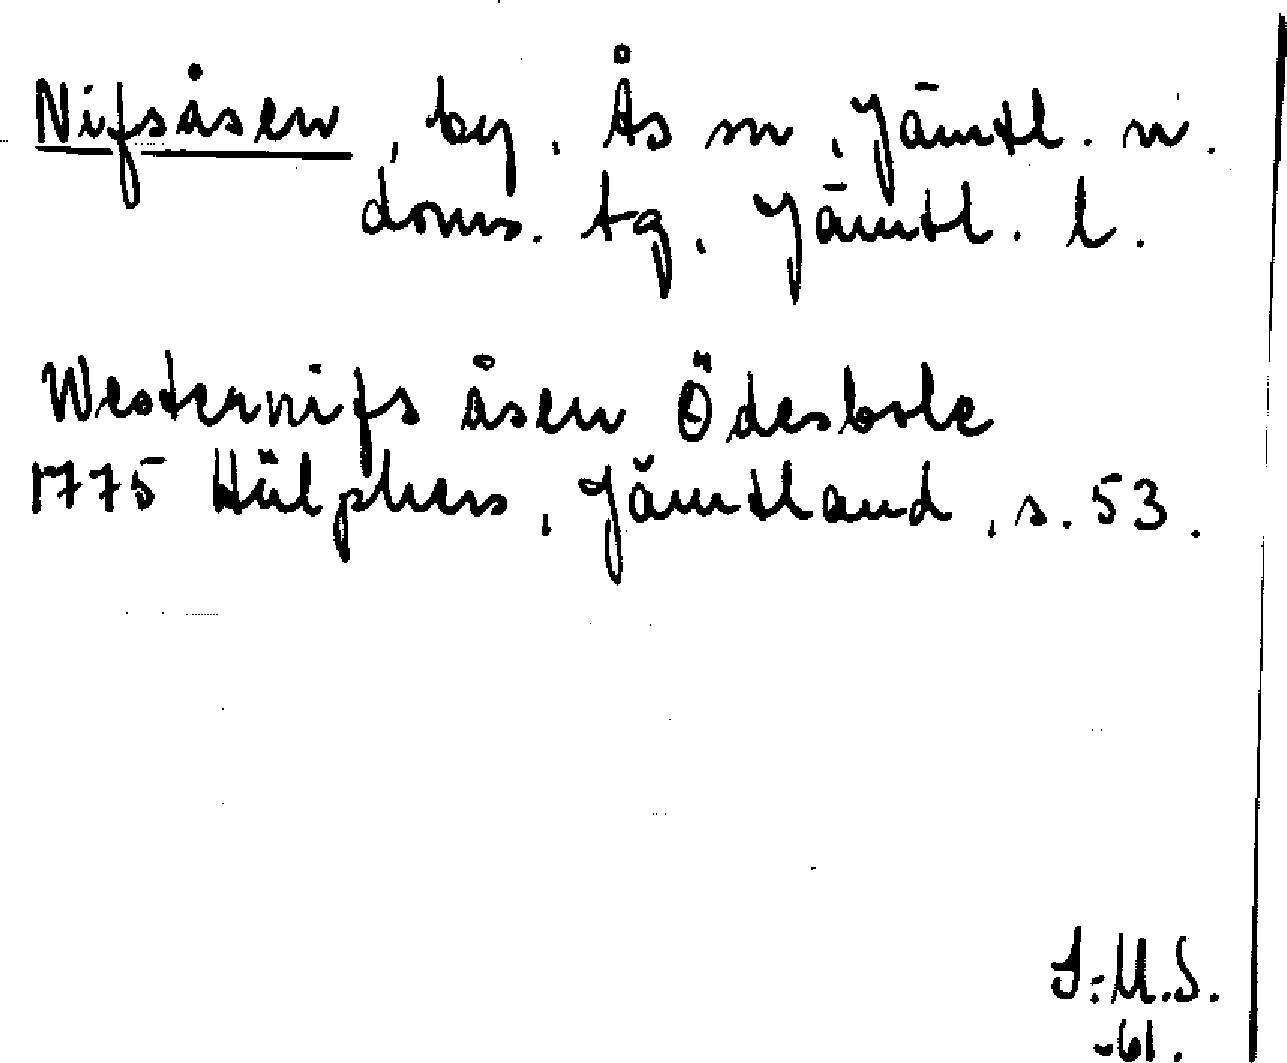 Nifsåsen, by, Ås sn, Jämtl. n.
doms. tg, Jämtl. l.
Westernifs åsen Ödesbole
1775 Hülphers, Jämtland, s. 53.
I:M.S.
-61.